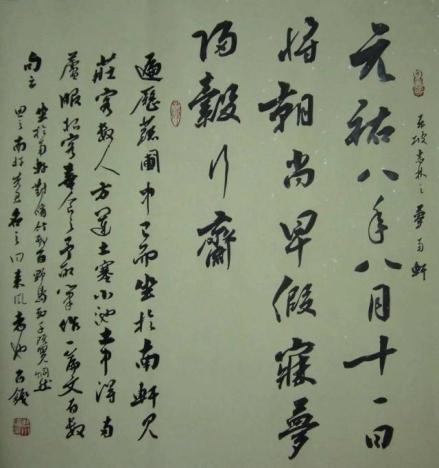 东坡志林之 夢南軒
元祐八年八月十一日
将朝尚早假寐夢
归縠行齋
遍歷蔬圃中已而坐於南軒見
莊客數人方運土塞小池土中得兩
蘆菔根客喜食之予取筆作一篇文有數
句云
坐於南軒對脩竹數百野鳥數千既覺惘然
思之南軒先君名之曰來風者也